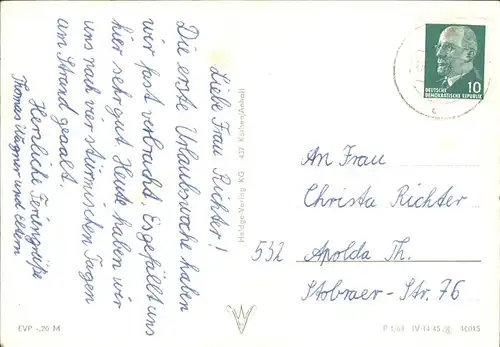 Liebe Frau Richter!
Die erste Urlaubswoche haben
wir fast verbracht. Es gefällt uns
hier sehr gut. Heute haben wir
uns nach vier stürmischen Tagen
am Strand geaalt.
Herzliche Feriengrüße
Thomas Wagner und Eltern
437 Köthen/Anhalt
Heldge-Verlag KG
DEUTSCHE
DEMOKRATISCHE REPUBLIK
10
An Frau
Christa Richter
532 Apolda Th.
Stobraer-Str. 76
EVP -,20 M
IV-14-45